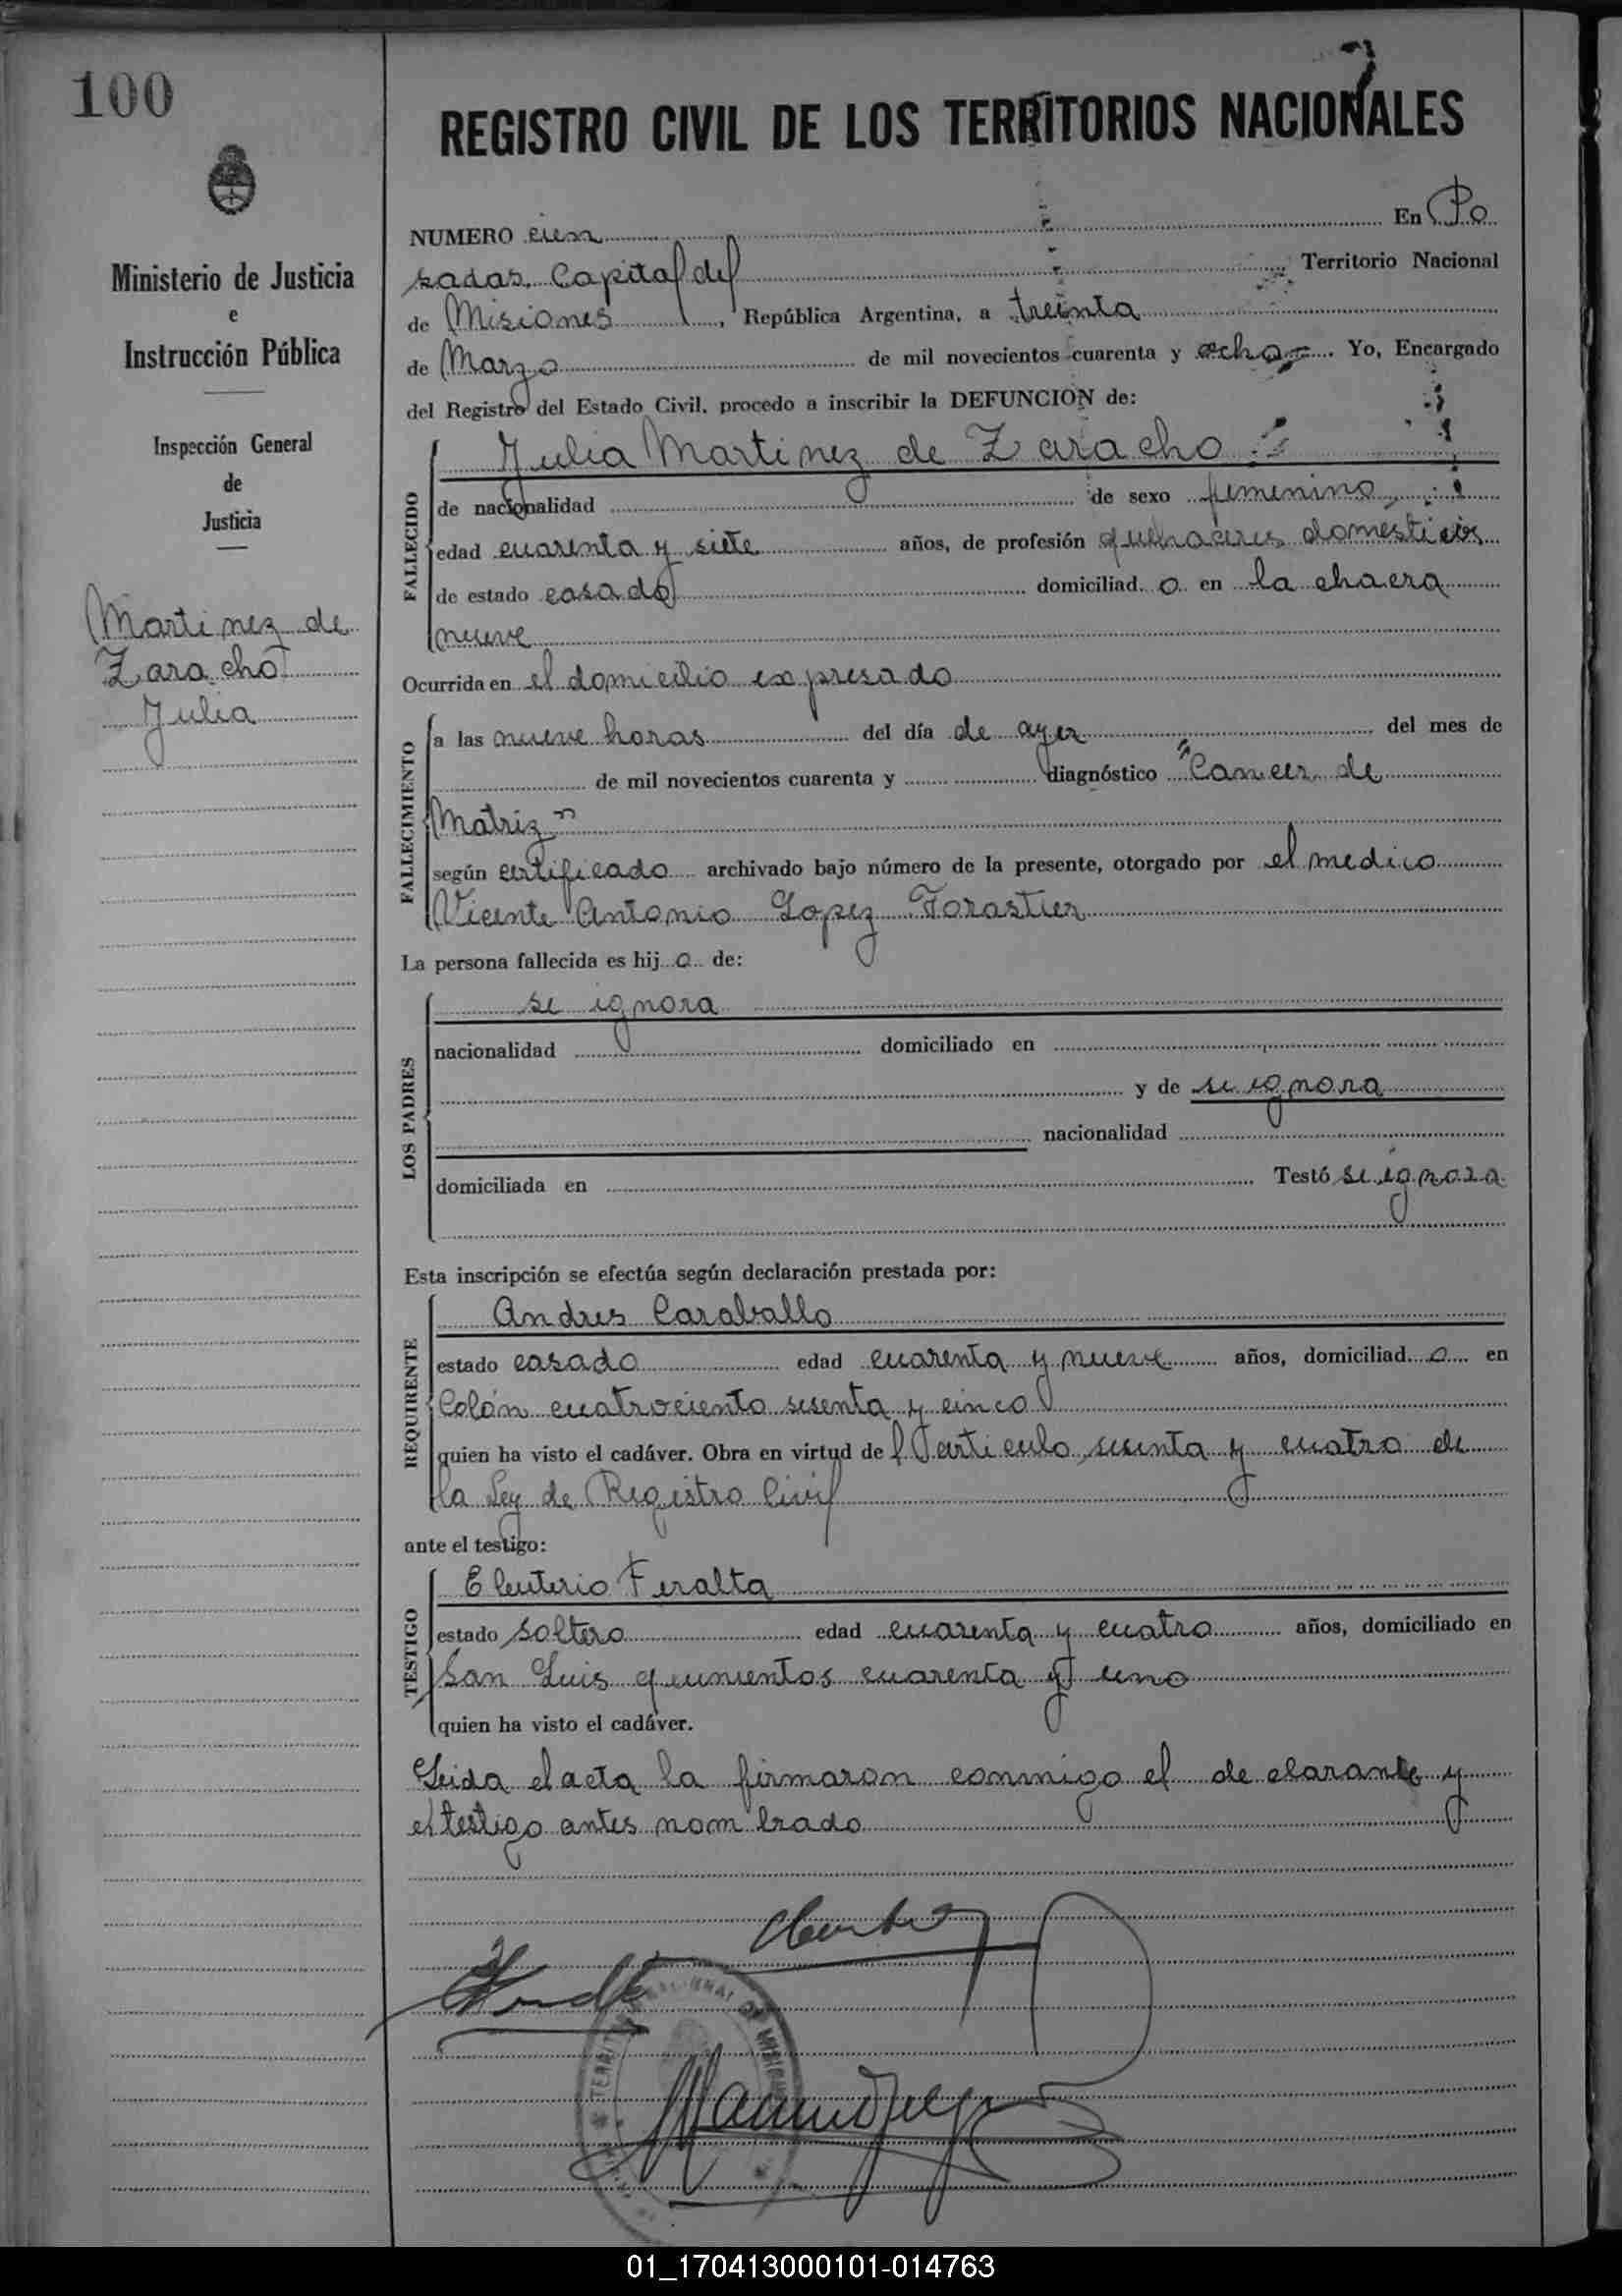 100
Ministerio de Justicia
e
Instrucción Pública
Inspección General
de
Justicia
Martinez de
Zaracho
Julia
REGISTRO CIVIL DE LOS TERRITORIOS NACIONALES
NUMERO cien En Po
sadas, Capital del Territorio Nacional
de Misiones, República Argentina, a treinta
de Marzo de mil novecientos cuarenta y ocho. Yo, Encargado
del Registro del Estado Civil, procedo a inscribir la DEFUNCION de:
FALLECIDO
Julia Martinez de Zaracho
de nacionalidad de sexo femenino
edad cuarenta y siete años, de profesión quehaceres domésticos
de estado casada domiciliad a en la chacra
nueve
Ocurrida en el domicilio expresado
FALLECIMIENTO
a las nueve horas del día de ayer del mes de
de mil novecientos cuarenta y diagnóstico "Cancer de
Matriz"
según certificado archivado bajo número de la presente, otorgado por el medico
Vicente Antonio Lopez Forastier
La persona fallecida es hij a de:
LOS PADRES
se ignora
nacionalidad domiciliado en
y de se ignora
nacionalidad
domiciliada en Testó se ignora
Esta inscripción se efectúa según declaración prestada por:
REQUIRENTE
Andres Caraballo
estado casado edad cuarenta y nueve años, domiciliad o en
Colón cuatrociento sesenta y cinco
quien ha visto el cadáver. Obra en virtud del articulo sesenta y cuatro de
la Ley de Registro Civil
ante el testigo:
TESTIGO
Eleuterio Peralta
estado soltero edad cuarenta y cuatro años, domiciliado en
San Luis quinientos cuarenta y uno
quien ha visto el cadáver.
Leida el acta la firmaron conmigo el declarante y
el testigo antes nombrado
TERRITORIO NACIONAL DE MISIONES
01_170413000101-014763